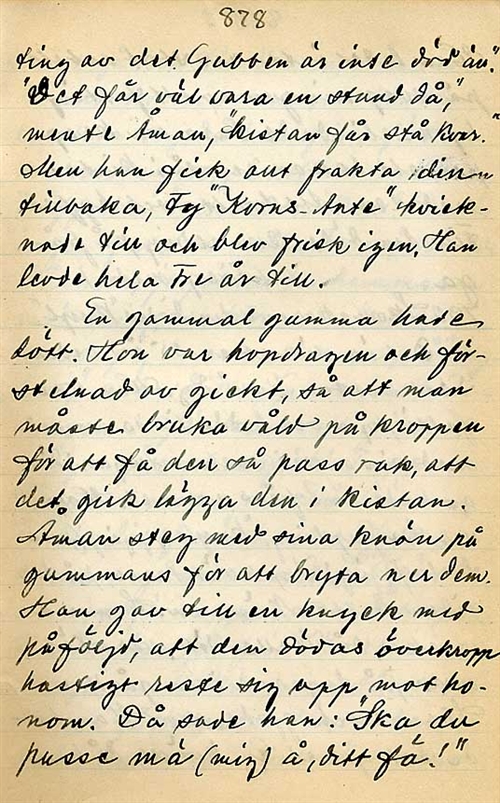 878
ting av det. Gubben är inte död än."
"Det får väl vara en stund då,"
mente Åman, "kistan får stå kvar."
Men han fick allt frakta den
tillbaka, ty "Korns-Ante" kvick-
nade till och blev frisk igen. Han
levde hela tre år till.
En gammal gumma hade
dött. Hon var hopdragen och för-
stelnad av gickt, så att man
måste bruka våld på kroppen
för att få den så pass rak, att
det gick lägga den i kistan.
Åman steg med sina knän på
gummans för att bryta ner dem.
Han gav till en knyck med
påföljd, att den dödas överkropp
hastigt reste sig upp mot ho-
nom. Då sade han: "Ska du
pusse mä (mig) å, ditt fä!"